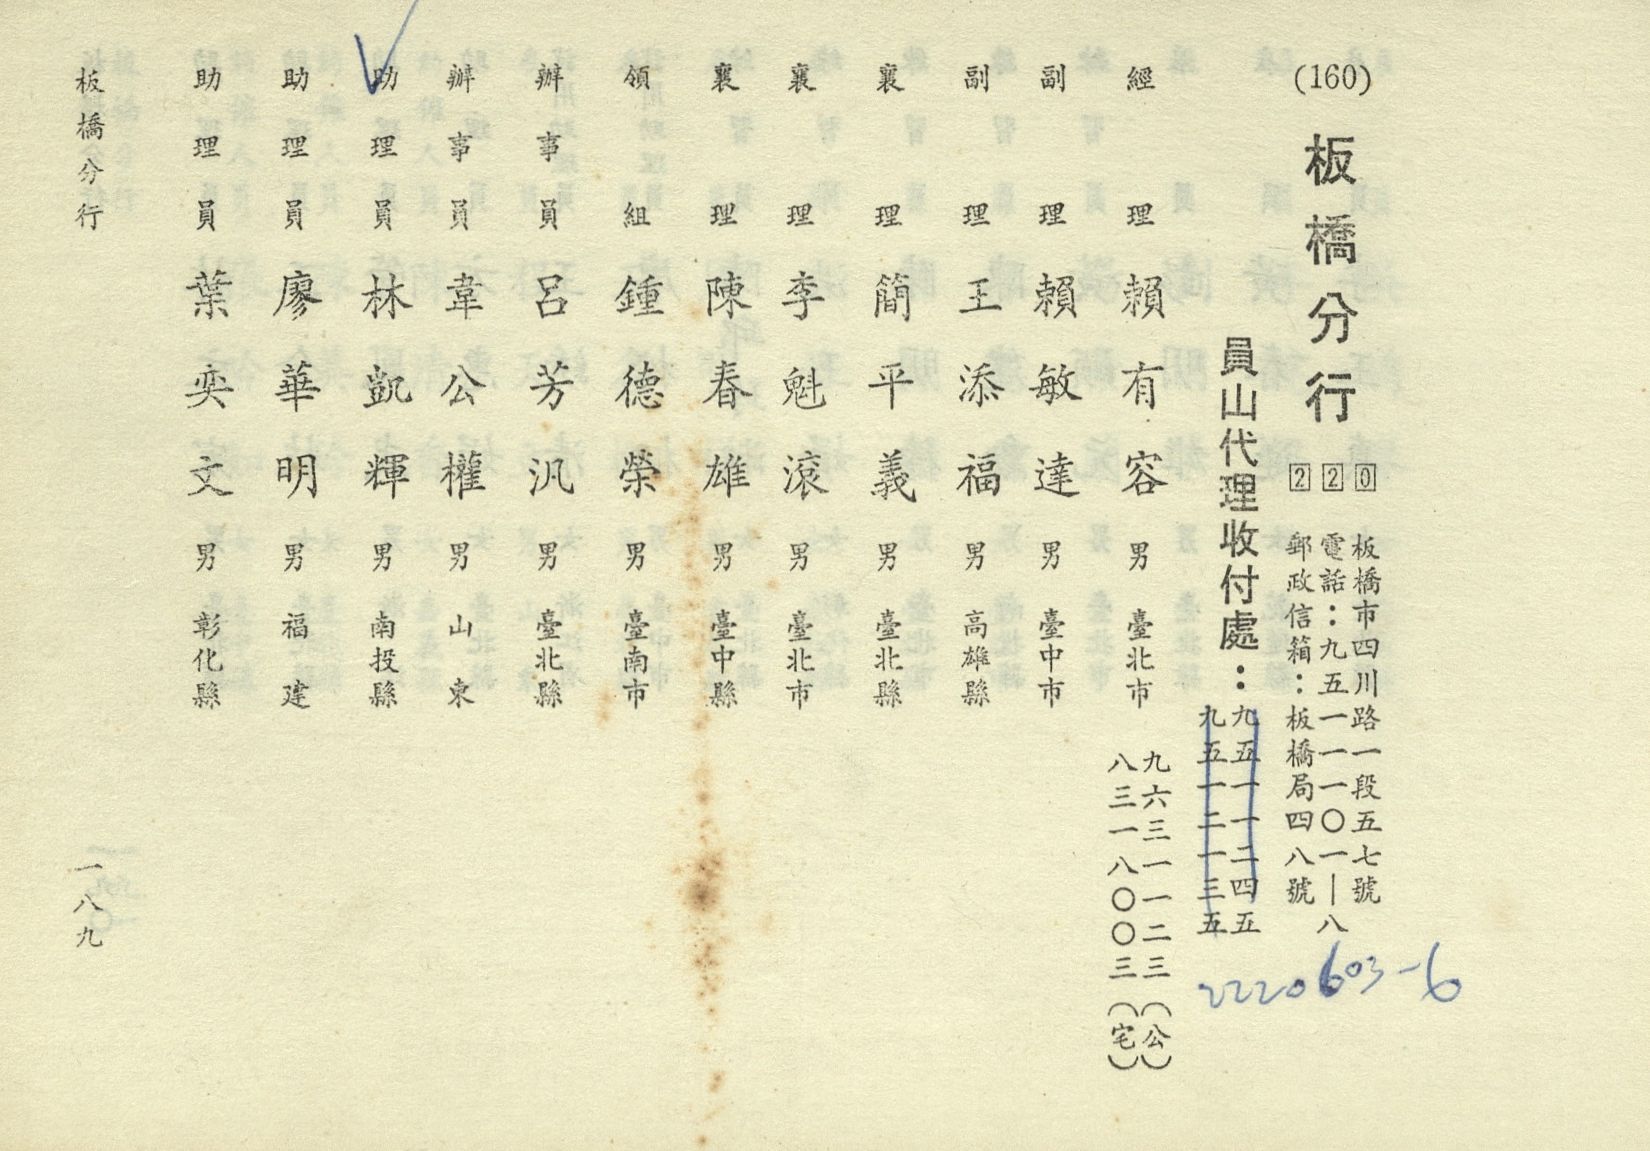 (160)
板橋分行
220
板橋市四川路一段五七號
電話：九五一一一〇一—八
郵政信箱：板橋局四八號
員山代理收付處：
九五一一二四五
九五一二一三五
2220603-6
經理 賴有容 男 臺北市
九六三一一二三（公）
八三一八〇〇三（宅）
副理 賴敏達 男 臺中市
副理 王添福 男 高雄縣
襄理 簡平義 男 臺北縣
襄理 李魁滾 男 臺北市
襄理 陳春雄 男 臺中縣
領組 鍾德榮 男 臺南市
辦事員 呂芳汎 男 臺北縣
辦事員 韋公權 男 山東
助理員 林凱輝 男 南投縣
助理員 廖華明 男 福建
助理員 葉奕文 男 彰化縣
板橋分行
一八九